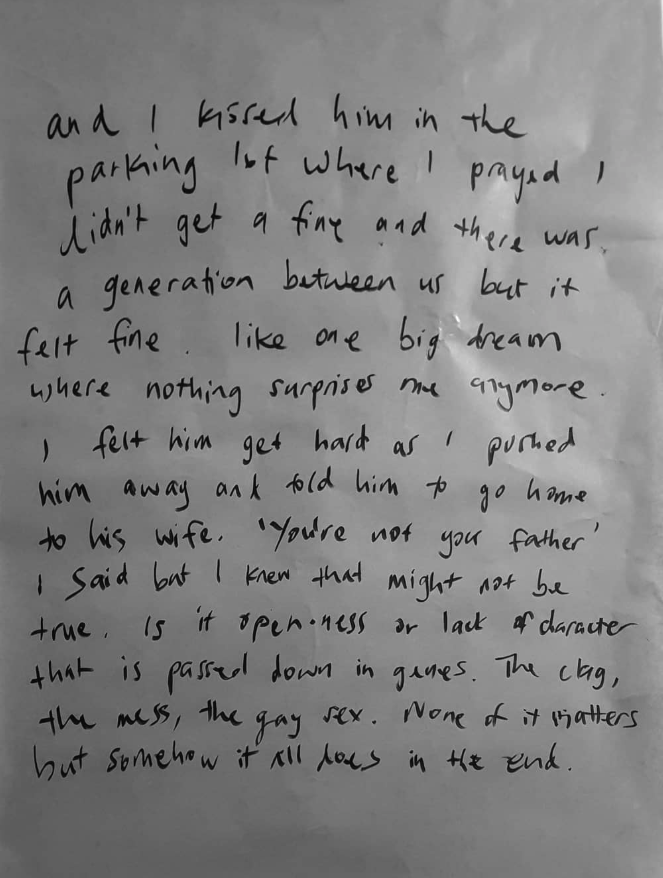 and I kissed him in the
parking lot where I prayed I
didn't get a fine and there was
a generation between us but it
felt fine. like one big dream
where nothing surprises me anymore.
I felt him get hard as I pushed
him away and told him to go home
to his wife. 'You're not your father'
I said but I knew that might not be
true. Is it open-ness or lack of character
that is passed down in genes. The clag,
the mess, the gay sex. None of it matters
but somehow it all does in the end.